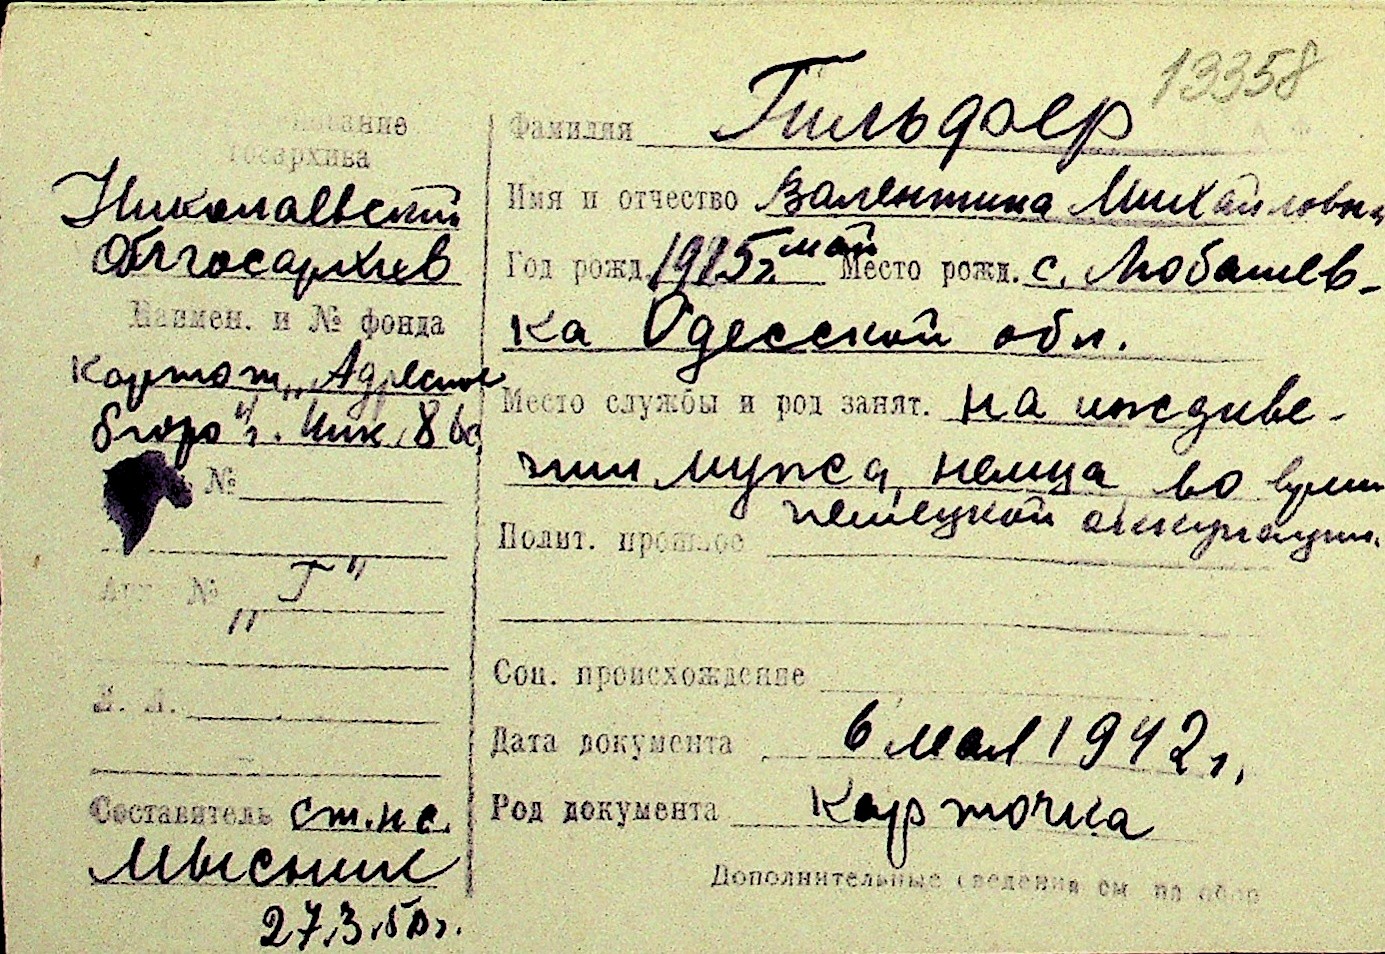 13358
...звание
госархива
Николаевский
Облгосархив
Наимен. и № фонда
картот. „Адресное
бюро" г. Ник.
№
Арх. №
„Г"
Составитель ст. н. с.
Мысник
27.3.50 г.
Фамилия Гильдфер
Имя и отчество Валентина Михайловна
Год рожд. 1915 г. май Место рожд. с. Любашев-
ка Одесской обл.
Место службы и род занят. на иждиве-
нии мужа, немца во время
немецкой оккупации.
Полит. прошлое
Соц. происхождение
Дата документа 6 мая 1942 г.
Род документа Карточка
Дополнительные сведения см. на обор